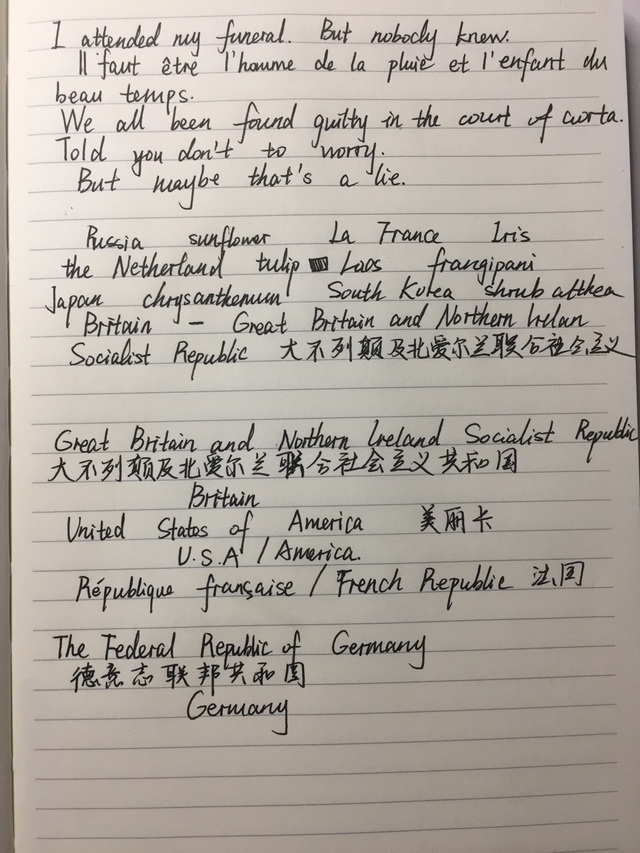 I attended my funeral. But nobody knew.
Il faut être l'homme de la pluie et l'enfant du
beau temps.
We all been found guilty in the court of aorta.
Told you don't to worry.
But maybe that's a lie.
Russia sunflower La France Iris
the Netherland tulip Laos frangipani
Japan chrysanthemum South Korea shrub althea
Britain - Great Britain and Northern Irelan
Socialist Republic 大不列颠及北爱尔兰联合社会主义
Great Britain and Northern Ireland Socialist Republic
大不列颠及北爱尔兰联合社会主义共和国
Britain
United States of America 美丽卡
U.S.A / America.
République française / French Republic 法国
The Federal Republic of Germany
德意志联邦共和国
Germany